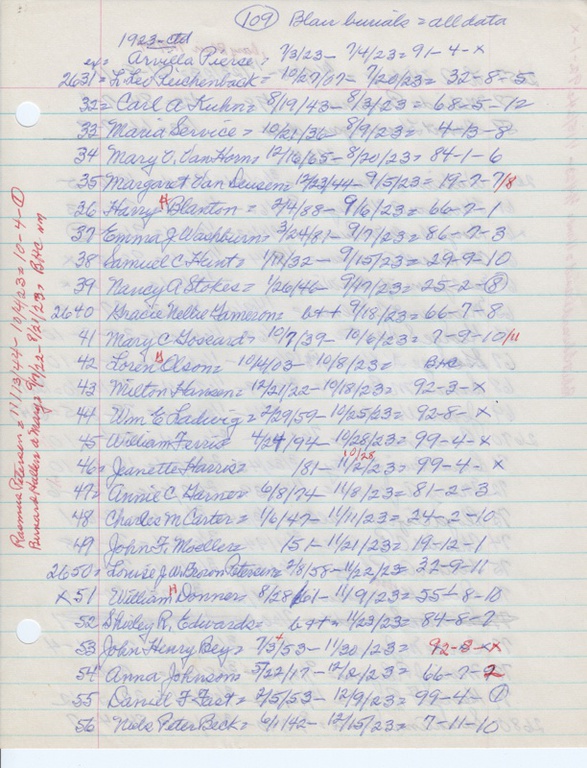 109 Blair burials = all data
1923 - ctd
ex = Arvilla Pierse = 7/3/23 - 7/4/23 = 91-4-x
2631 = L Leo Reichenback = 10/27/07 - 7/20/23 = 32-8-5
32 = Carl A Kuhn = 8/19/43 - 8/3/23 = 68-5-12
33 Maria Service = 10/21/36 - 8/9/23 = 4-13-8
34 Mary O. Van Horn = 12/16/65 - 8/20/23 = 84-1-6
35 Margaret Van Deusen = 12/23/44 - 9/5/23 = 19-7-7/8
36 Harry H Blanton = 2/4/88 - 9/6/23 = 66-7-1
37 Emma J Washburn = 3/24/81 - 9/7/23 = 86-7-3
38 Samuel C Hunt = 1/17/32 - 9/15/23 = 29-9-10
39 Nancy A Stokes = 1/26/46 - 9/17/23 = 25-2-8
2640 Gracie Nellie Cameron = b++ 9/18/23 = 66-7-8
41 Mary C Goscard = 10/7/39 - 10/6/23 = 7-9-10/11
42 Loren H Olson = 10/4/03 - 10/8/23 = BHC
43 Milton Hansen = 12/21/22 - 10/18/23 = 92-3-x
44 Wm E Ladwig = 2/29/59 - 10/25/23 = 92-8-x
45 William Ferris = 4/24/94 - 10/28/23 = 99-4-x
10/28
46 = Jeanette Harris = /81 - 11/2/23 = 99-4-x
47 = Annie C Garner = 6/8/74 - 11/8/23 = 81-2-3
48 Charles M Carter = 1/6/47 - 11/11/23 = 24-2-10
49 John F. Moeller = 151 - 11/21/23 = 19-12-1
2650 = Louise J W Brown Petersen = 2/8/58 - 11/22/23 = 32-9-11
x51 William H Donner = 8/28/61 - 11/9/23 = 55-8-10
52 Shirley R. Edwards = b++ = 11/23/23 = 84-8-7
53 John Henry Bey = 7/3/53 - 11/30/23 = 92-8-x
54 Anna Johnson = 5/22/17 - 12/2/23 = 66-7-2
55 Daniel F Fast = 2/5/53 - 12/9/23 = 99-4-1
56 Niels Peter Beck = 6/1/42 - 12/15/23 = 7-11-10
Rasmus Peterson = 11/13/44 - 10/4/23 = 10-4-1